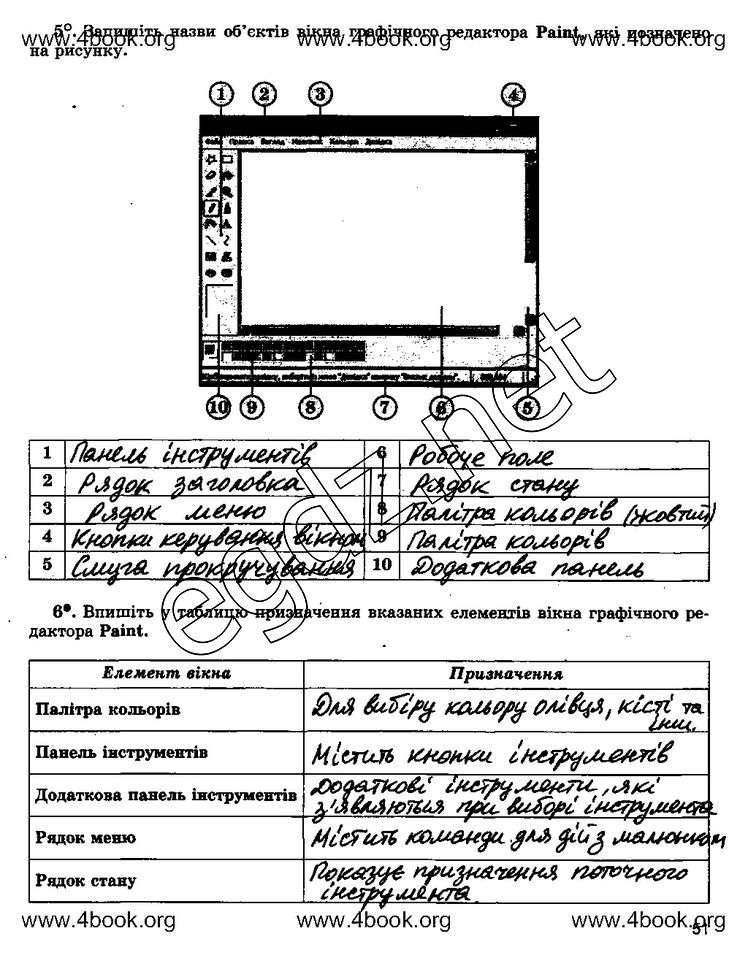 5°. Запишіть назви об'єктів вікна графічного редактора Paint, які позначено
www.4book.org www.4book.org www.4book.org
на рисунку.
1 2 3 4
Файл Правка Вигляд Малюнок Кольори Довідка
10 9 8 7 6 5
1 Панель інструментів 6 Робоче поле
2 Рядок заголовка 7 Рядок стану
3 Рядок меню 8 Палітра кольорів (жовтий)
4 Кнопки керування вікном 9 Палітра кольорів
5 Смуга прокручування 10 Додаткова панель
egdz.net
6•. Впишіть у таблицю призначення вказаних елементів вікна графічного ре-
дактора Paint.
Елемент вікна Призначення
Палітра кольорів Для вибіру кольору олівця, кісті та
інш.
Панель інструментів Містить кнопки інструментів
Додаткова панель інструментів Додаткові інструменти, які
з'являються при виборі інструмента
Рядок меню Містить команди для дій з малюнком
Рядок стану Показує призначення поточного
інструмента
www.4book.org www.4book.org www.4book.org
51